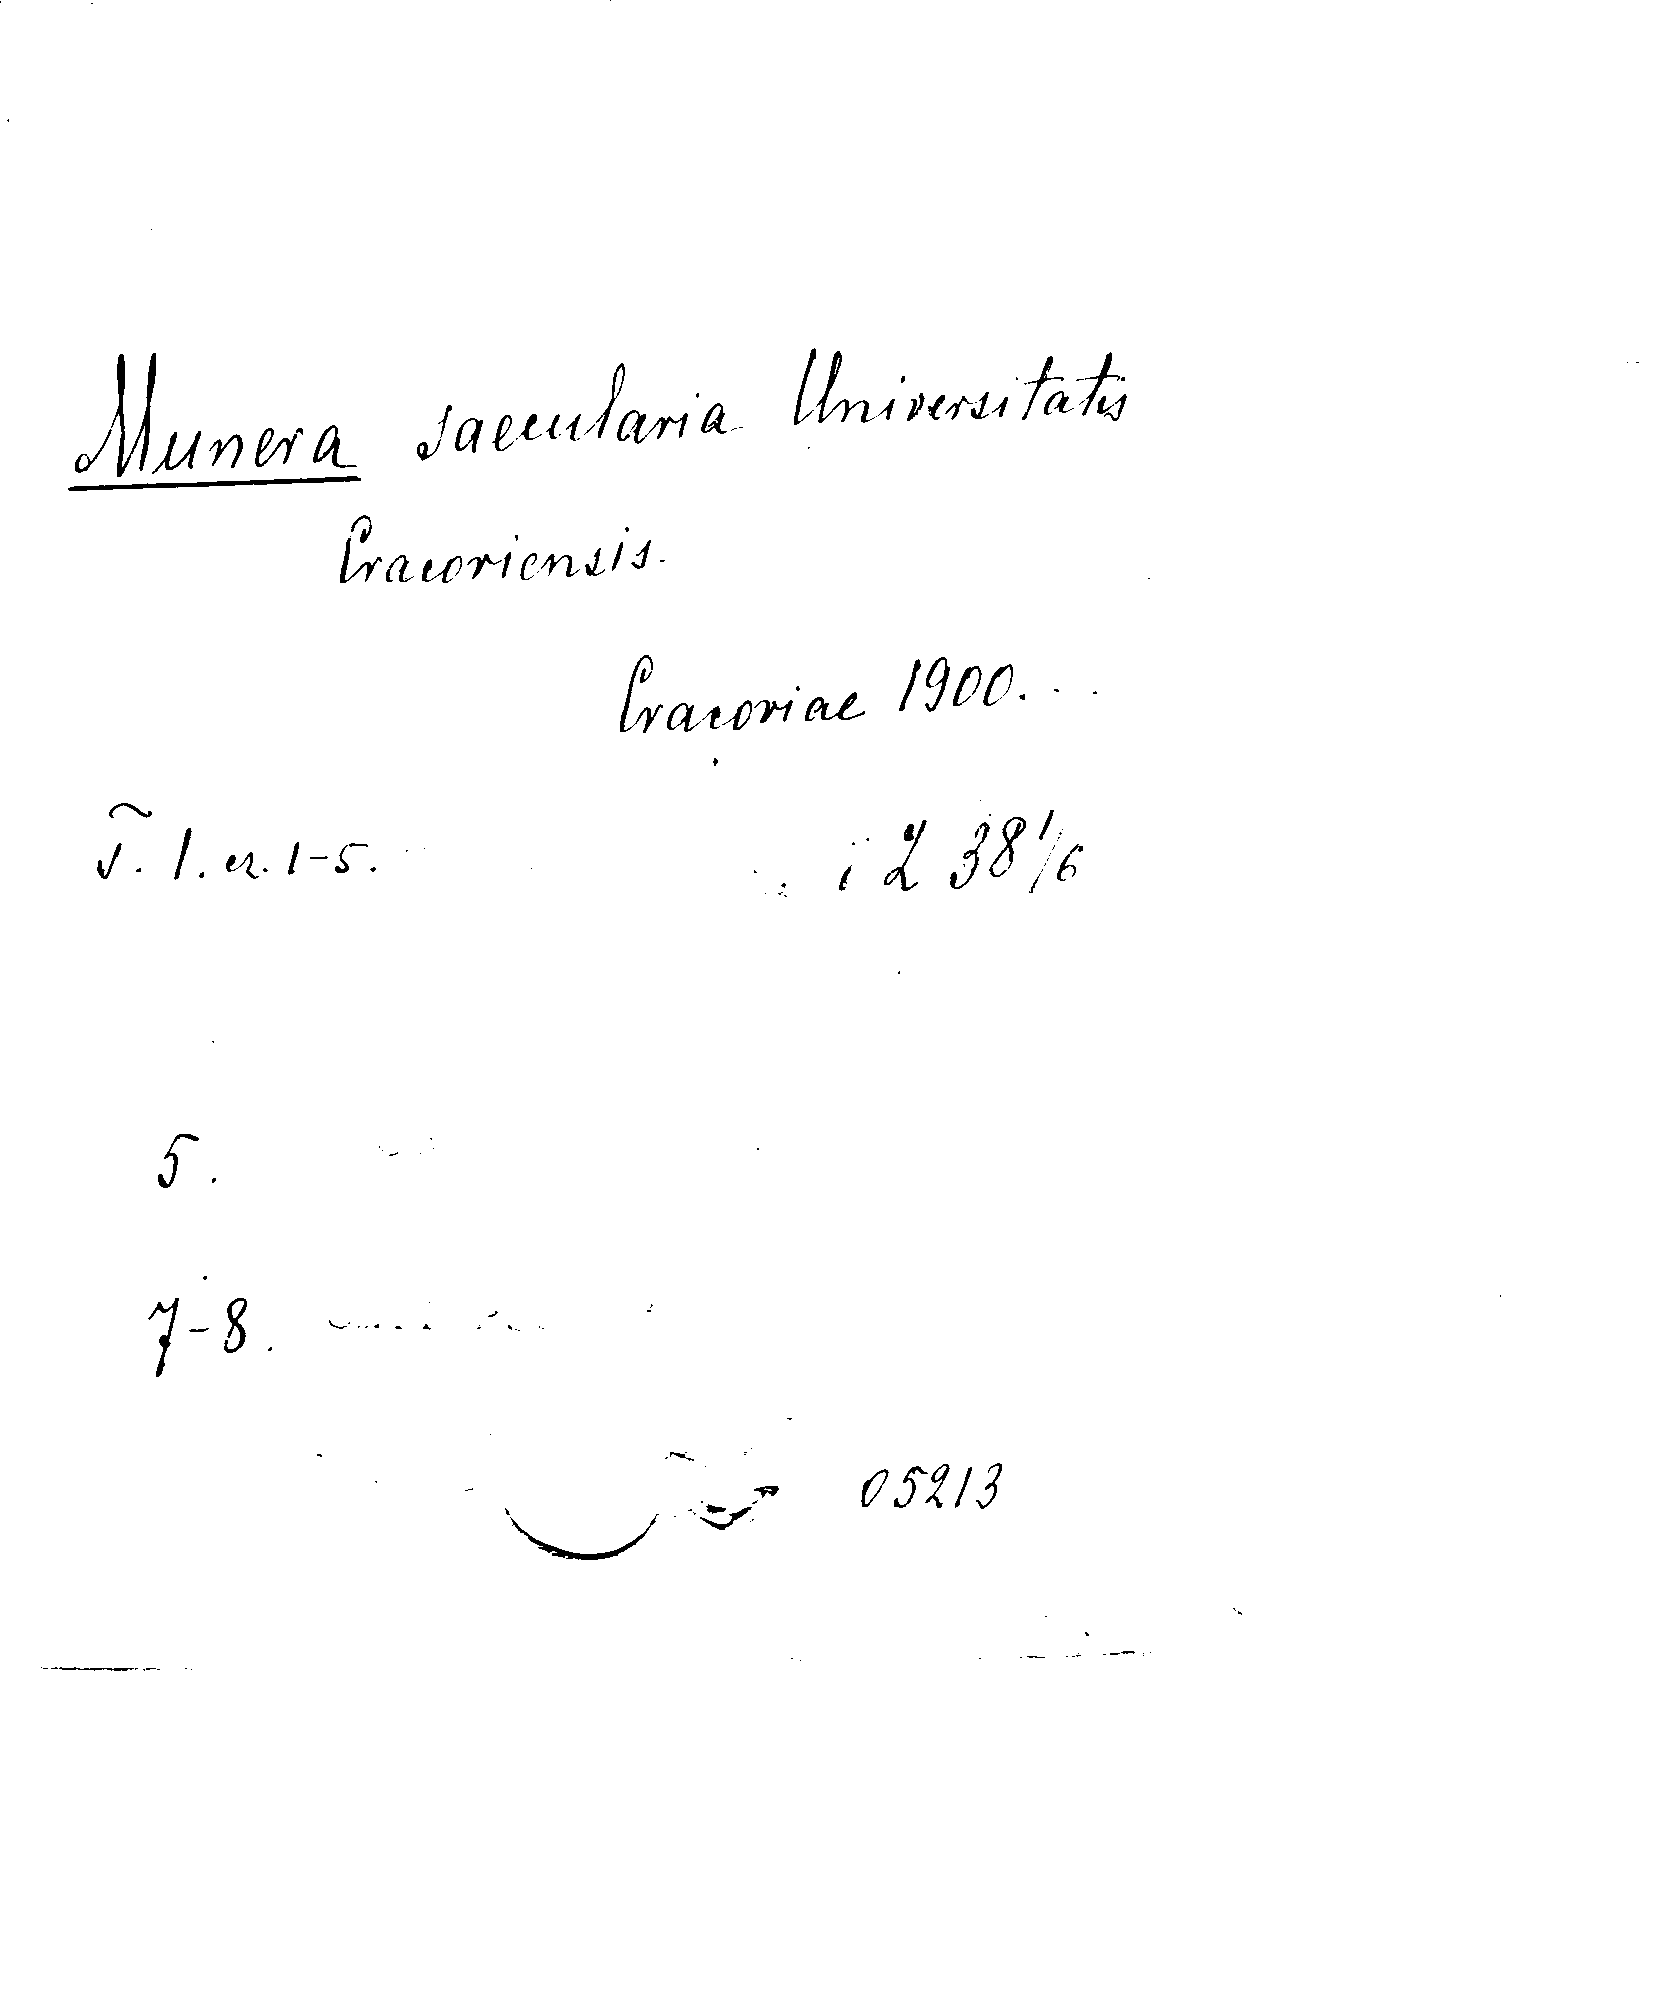 Munera saecularia Universitatis
Cracoviensis.
Cracoviae 1900...
T. 1. cz. 1-5. i 2 38 1/6
5.
7-8.
05213